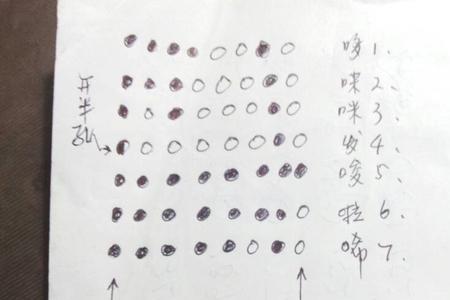 哆1、
咪2、
咪3、
发4、
唆5、
啦6、
唏7、
开半孔